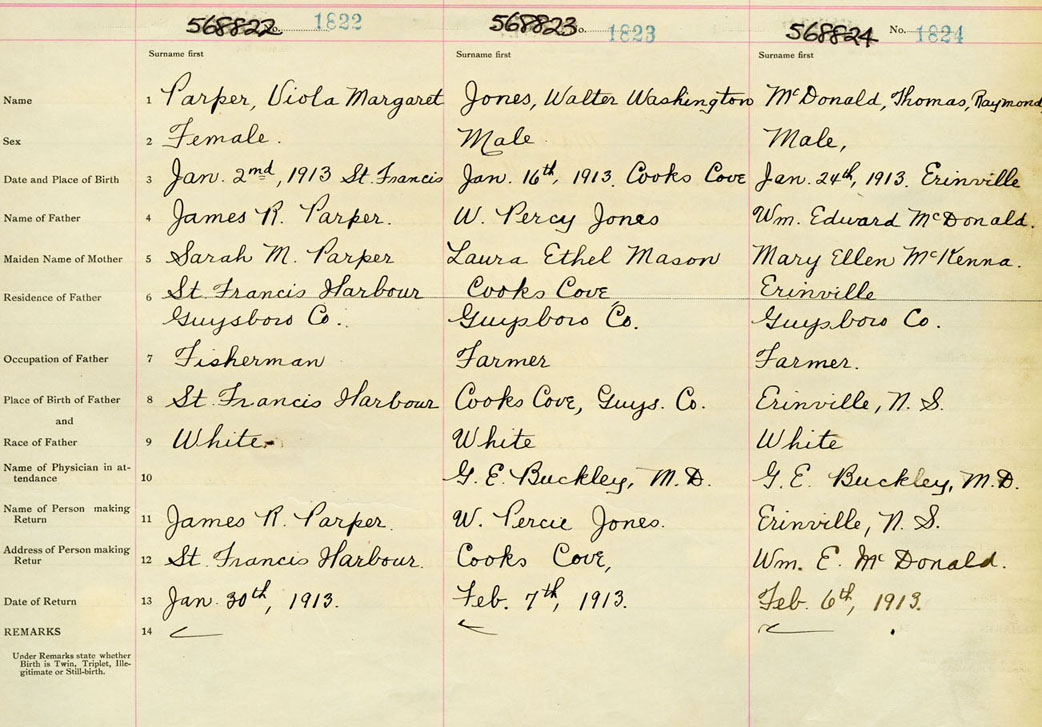 568822 No. 1822 568823 No. 1823 568824 No. 1824
Surname first Surname first Surname first
Name 1 Parper, Viola Margaret Jones, Walter Washington McDonald, Thomas, Raymond
Sex 2 Female. Male Male,
Date and Place of Birth 3 Jan. 2nd, 1913 St. Francis Jan. 16th, 1913. Cooks Cove Jan. 24th, 1913. Erinville
Name of Father 4 James R. Parper. W. Percy Jones Wm. Edward McDonald.
Maiden Name of Mother 5 Sarah M. Parper Laura Ethel Mason Mary Ellen McKenna.
Residence of Father 6 St. Francis Harbour Cooks Cove, Erinville
Guysboro Co. Guysboro Co. Guysboro Co.
Occupation of Father 7 Fisherman Farmer Farmer.
Place of Birth of Father 8 St. Francis Harbour Cooks Cove, Guys. Co. Erinville, N. S.
and
Race of Father 9 White White White
Name of Physician in at-
tendance 10 G. E. Buckley, M.D. G. E. Buckley, M.D.
Name of Person making
Return 11 James R. Parper. W. Percie Jones. Erinville, N. S.
Address of Person making
Retur 12 St. Francis Harbour. Cooks Cove, Wm. E. McDonald.
Date of Return 13 Jan. 30th, 1913. Feb. 7th, 1913. Feb. 6th, 1913.
REMARKS 14
Under Remarks state whether
Birth is Twin, Triplet, Ille-
gitimate or Still-birth.